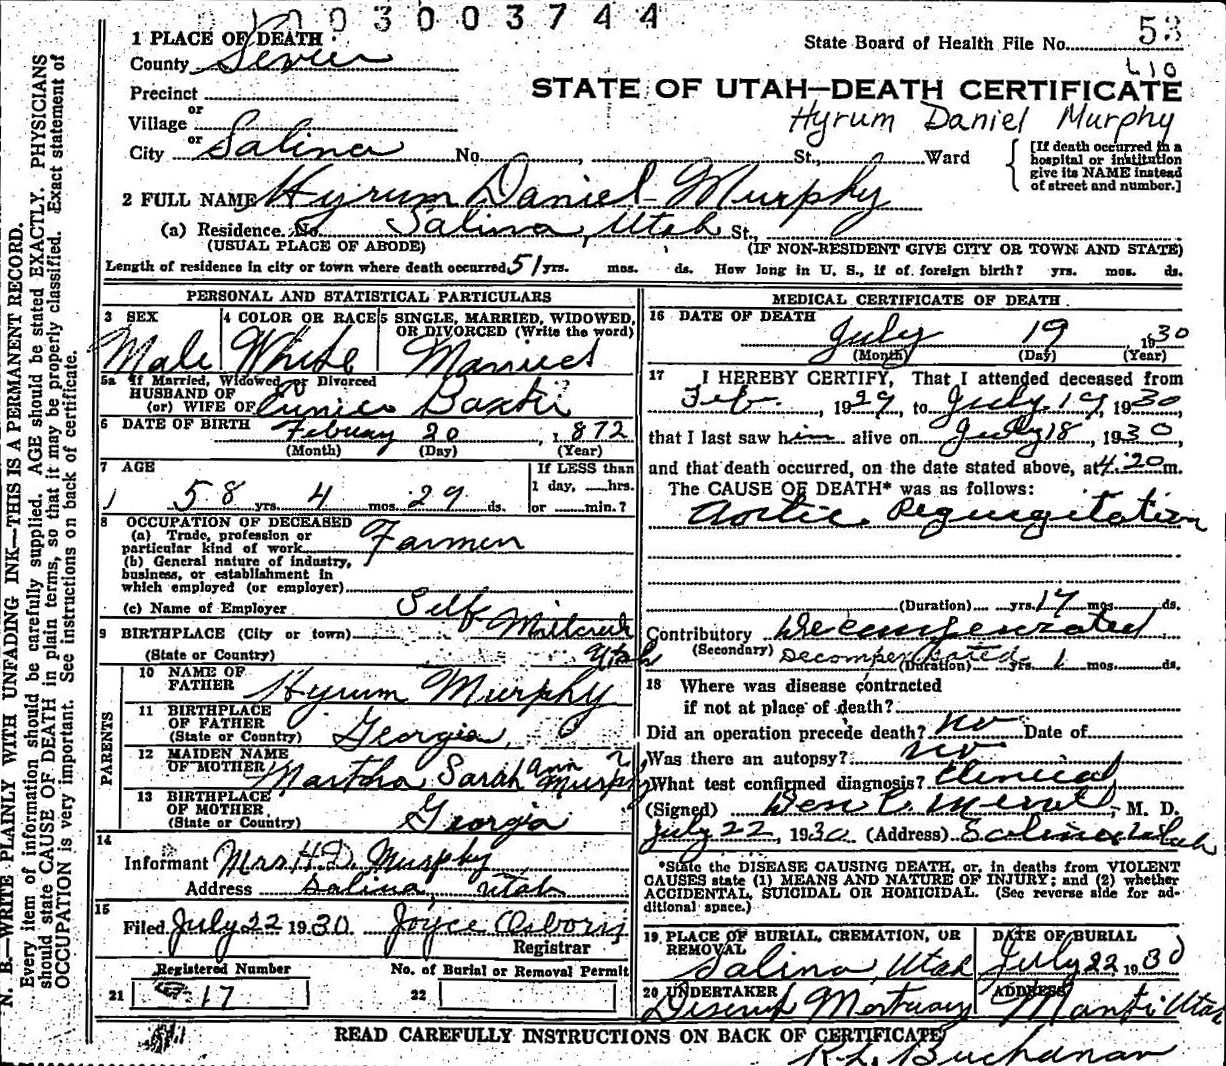 1003003744
1 PLACE OF DEATH
State Board of Health File No. 53
County Sevier
L10
STATE OF UTAH—DEATH CERTIFICATE
Precinct
or
Village
Hyrum Daniel Murphy
or
City Salina No. , St., Ward
[If death occurred in a hospital or institution give its NAME instead of street and number.]
2 FULL NAME Hyrum Daniel Murphy
(a) Residence. No. Salina, Utah St.,
(USUAL PLACE OF ABODE) (IF NON-RESIDENT GIVE CITY OR TOWN AND STATE)
Length of residence in city or town where death occurred 51 yrs. mos. ds. How long in U. S., if of foreign birth? yrs. mos. ds.
PERSONAL AND STATISTICAL PARTICULARS
3 SEX
4 COLOR OR RACE
5 SINGLE, MARRIED, WIDOWED, OR DIVORCED (Write the word)
Male White Married
5a If Married, Widowed or Divorced
HUSBAND OF
(or) WIFE OF Eunice Baxter
6 DATE OF BIRTH Febuary 20, 1872
(Month) (Day) (Year)
7 AGE
If LESS than
1 day, hrs.
58 yrs. 4 mos. 29 ds. or min.?
8 OCCUPATION OF DECEASED
(a) Trade, profession or
particular kind of work Farmer
(b) General nature of industry,
business, or establishment in
which employed (or employer)
(c) Name of Employer Self
9 BIRTHPLACE (City or town) Millcreek
(State or Country) Utah
PARENTS
10 NAME OF
FATHER Hyrum Murphy
11 BIRTHPLACE
OF FATHER
(State or Country) Georgia
12 MAIDEN NAME
OF MOTHER Martha Sarah Ann Murphy ?
13 BIRTHPLACE
OF MOTHER
(State or Country) Georgia
14
Informant Mrs. H.D. Murphy
Address Salina, Utah
15
Filed July 22 1930 Joyce Osborn
Registrar
Registered Number
No. of Burial or Removal Permit
21 17 22
MEDICAL CERTIFICATE OF DEATH
16 DATE OF DEATH
July 19, 1930
(Month) (Day) (Year)
17 I HEREBY CERTIFY, That I attended deceased from
Feb. , 1929, to July 19, 1930,
that I last saw him alive on July 18, 1930,
and that death occurred, on the date stated above, at 4:20 m.
The CAUSE OF DEATH* was as follows:
Aortic Regurgitation
(Duration) yrs. 17 mos. ds.
Contributory Decompensated
(Secondary) Decompensated
(Duration) yrs. 1 mos. ds.
18 Where was disease contracted
if not at place of death?
Did an operation precede death? no Date of
Was there an autopsy? no
What test confirmed diagnosis? Clinical
(Signed) M. D.
July 22, 1930 (Address) Salina Utah
*State the DISEASE CAUSING DEATH, or, in deaths from VIOLENT
CAUSES state (1) MEANS AND NATURE OF INJURY; and (2) whether
ACCIDENTAL, SUICIDAL OR HOMICIDAL. (See reverse side for additional space.)
19 PLACE OF BURIAL, CREMATION, OR
REMOVAL
Salina, Utah
DATE OF BURIAL
July 22 1930
20 UNDERTAKER
Mortuary
ADDRESS
Manti Utah
READ CAREFULLY INSTRUCTIONS ON BACK OF CERTIFICATE
R.L. Buchanan
N. B.—WRITE PLAINLY WITH UNFADING INK—THIS IS A PERMANENT RECORD.
Every item of information should be carefully supplied. AGE should be stated EXACTLY. PHYSICIANS
should state CAUSE OF DEATH in plain terms, so that it may be properly classified. Exact statement of
OCCUPATION is very important. See instructions on back of certificate.